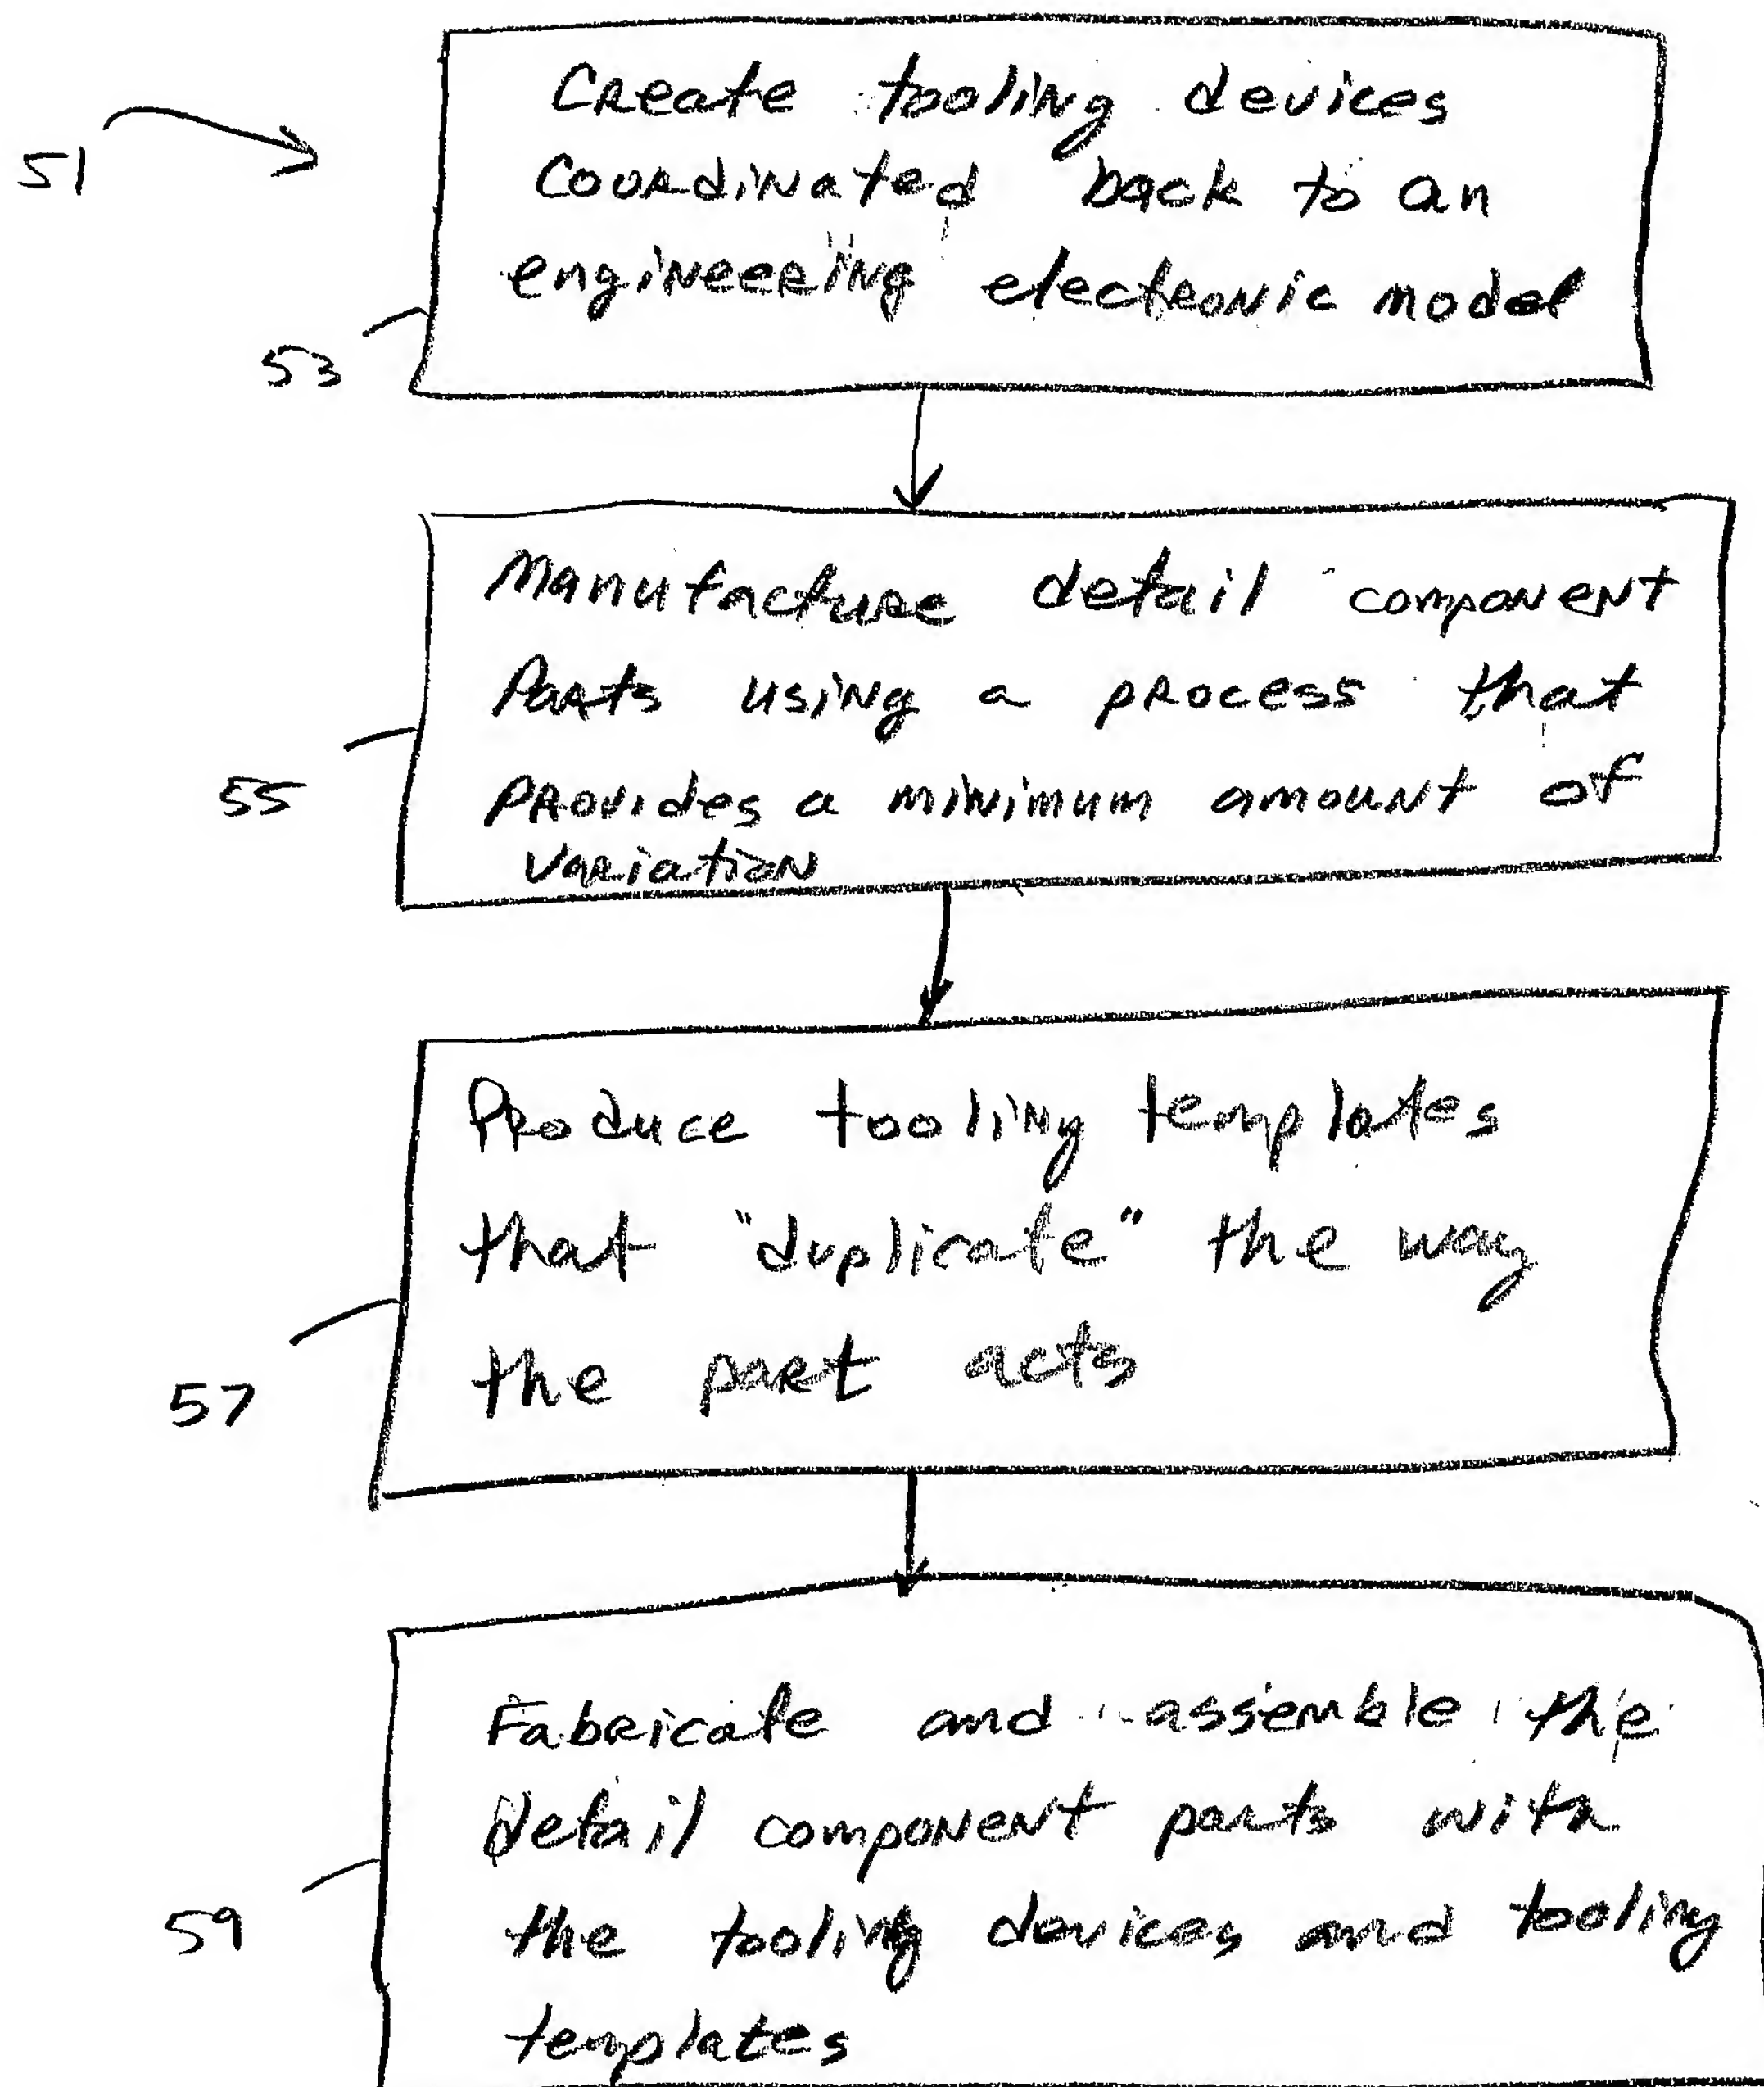 Create tooling devices
51
Coordinated back to an
engineering electronic model
53
Manufacture detail component
Parts using a process that
55
provides a minimum amount of
variation
Produce tooling templates
that "duplicate" the way
the part acts
57
Fabricate and assemble the
detail component parts with
59
the tooling devices and tooling
templates